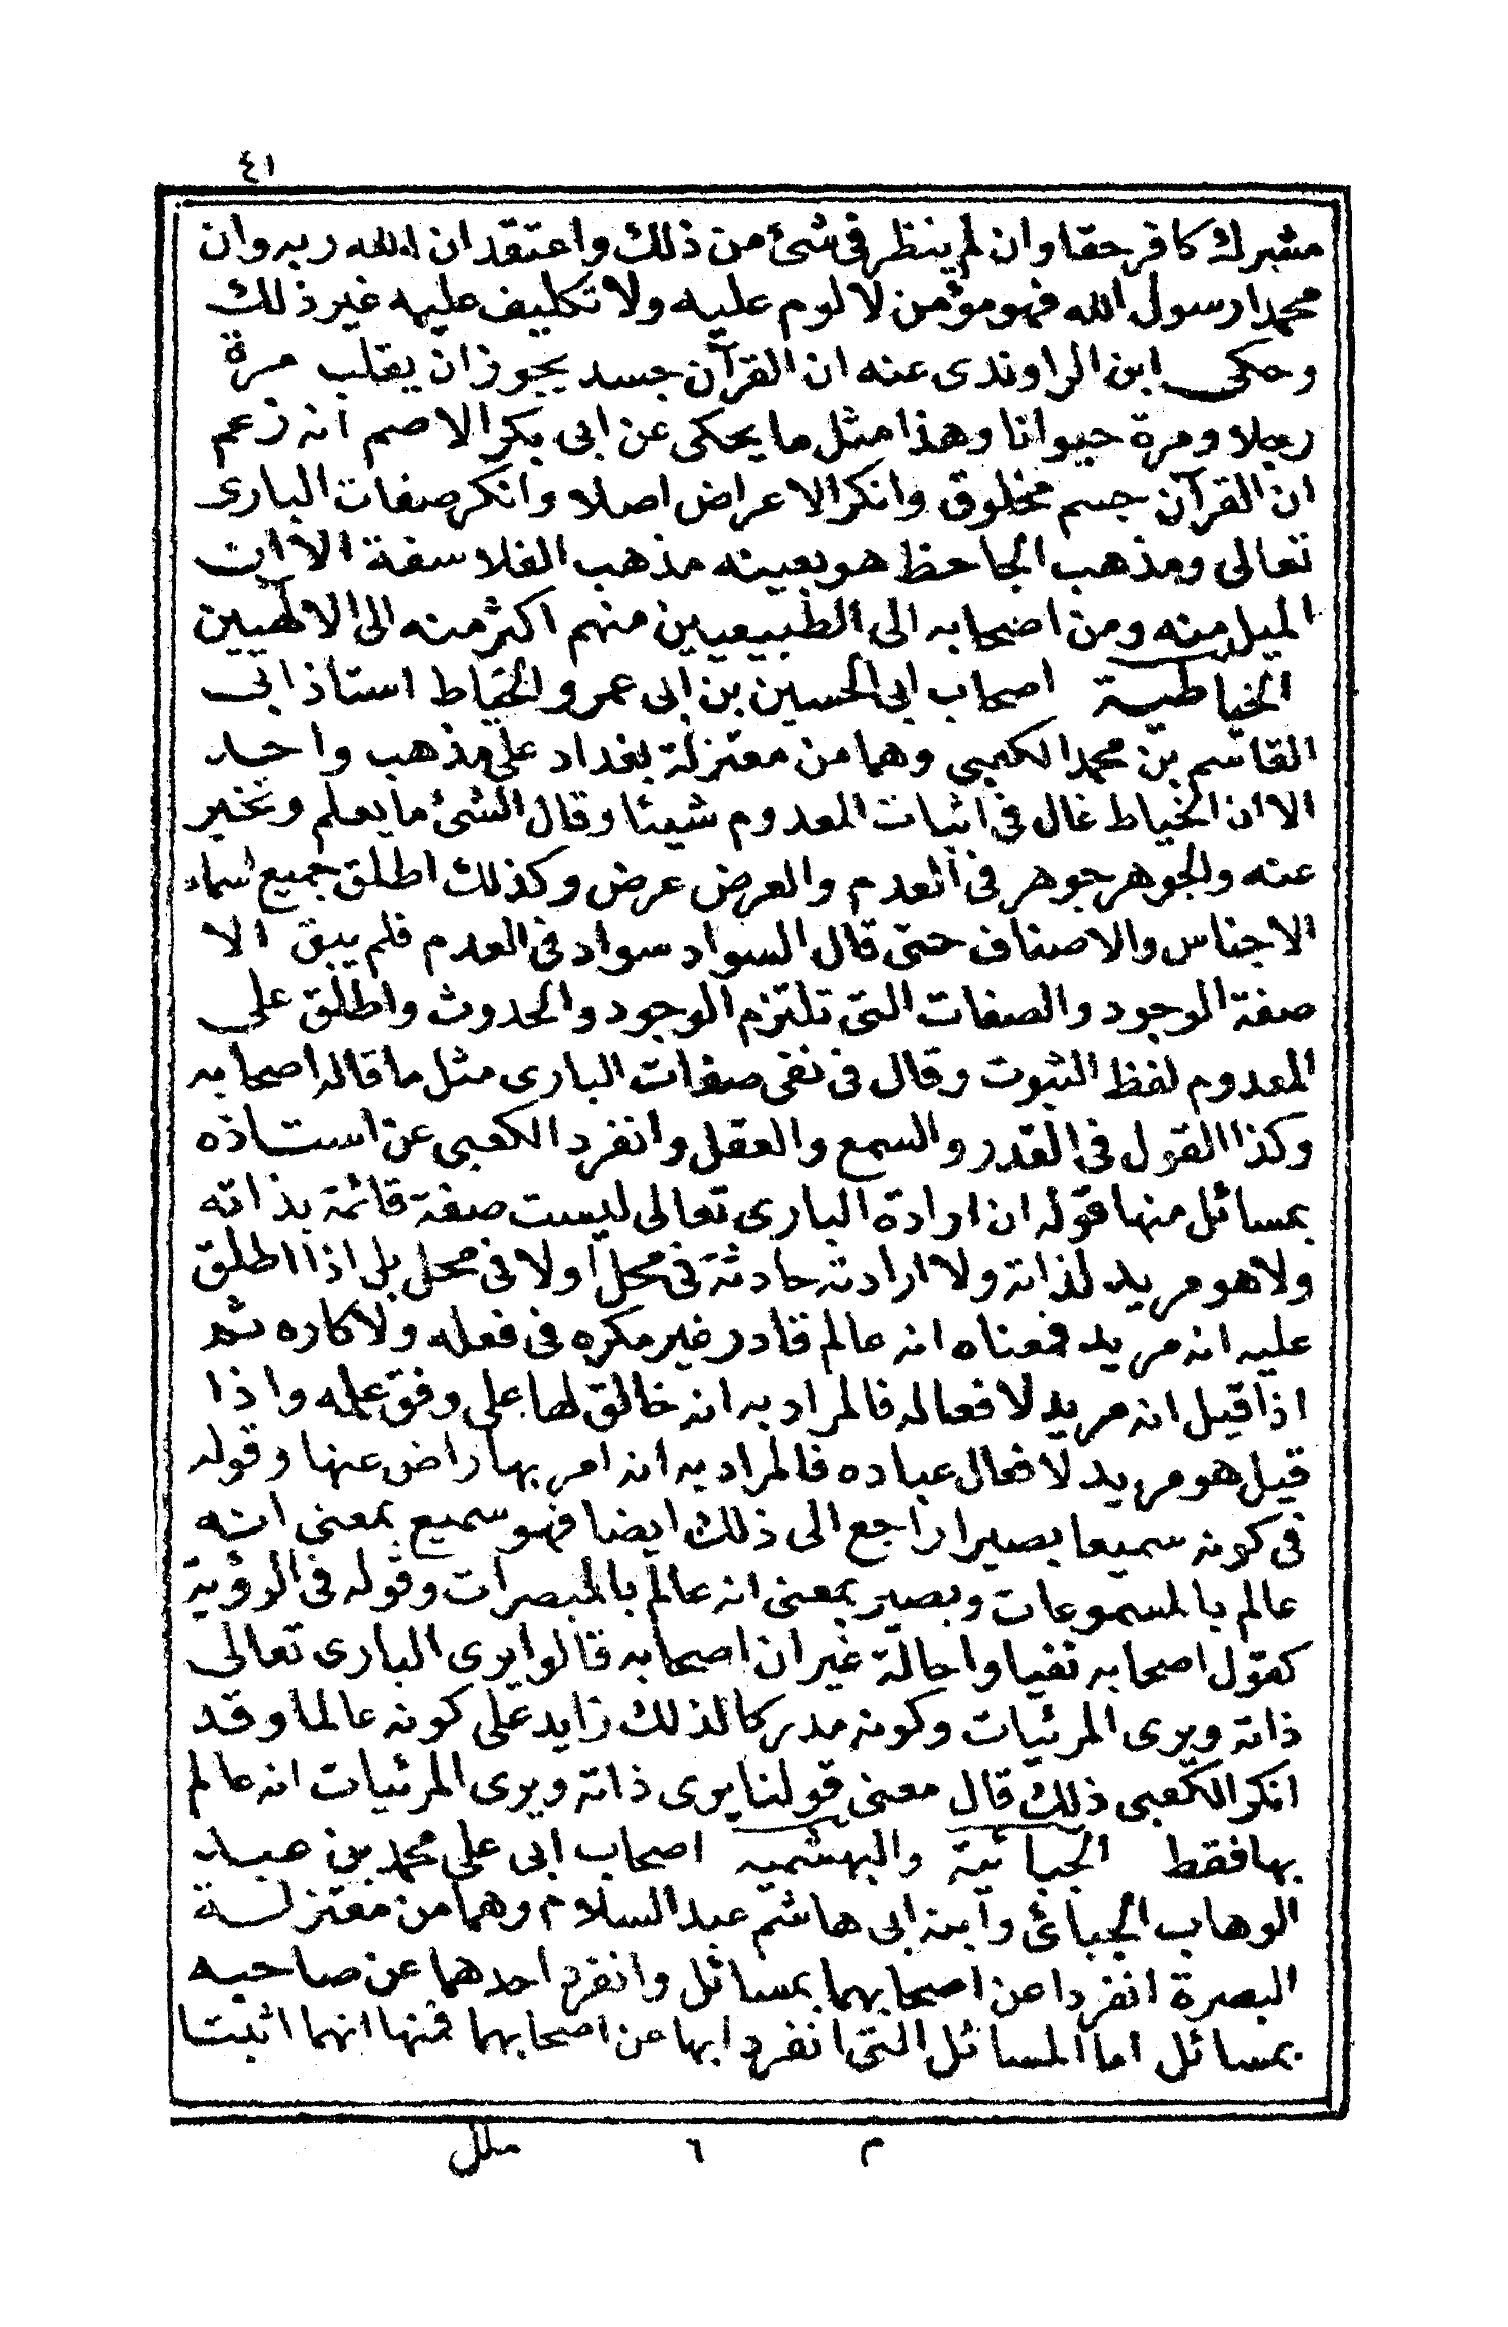 ٤١
مشرك كافر حقا وان لم ينظر فى شئ من ذلك واعتقد ان الله ربه وان
محمدا رسول الله فهو مؤمن لا لوم عليه ولا تكليف عليه غير ذلك
وحكى ابن الراوندى عنه ان القرآن جسد يجوز ان يقلب مرة
رجلا ومرة حيوانا وهذا مثل ما يحكى عن ابى بكر الاصم انه زعم
ان القرآن جسم مخلوق وانكر الاعراض اصلا وانكر صفات البارى
تعالى ومذهب الجاحظ هو بعينه مذهب الفلاسفة الا ان
الميل منه ومن اصحابه الى الطبيعيين منهم اكثر منه الى الالهيين
الخياطية اصحاب ابى الحسين بن ابى عمرو الخياط استاذ ابى
القاسم بن محمد الكعبى وهما من معتزلة بغداد على مذهب واحد
الا ان الخياط غال فى اثبات المعدوم شيئا وقال الشئ ما يعلم ويخبر
عنه والجوهر جوهر فى العدم والعرض عرض وكذلك اطلق جميع اسماء
الاجناس والاصناف حتى قال السواد سواد فى العدم فلم يبق الا
صفة الوجود والصفات التى تلتزم الوجود والحدوث واطلق على
المعدوم لفظ الثبوت وقال فى نفى صفات البارى مثل ما قاله اصحابه
وكذا القول فى القدر والسمع والعقل وانفرد الكعبى عن استاذه
بمسائل منها قوله ان ارادة البارى تعالى ليست صفة قائمة بذاته
ولا هو مريد لذاته ولا ارادته حادثة فى محل اولا فى محل بل اذا اطلق
عليه انه مريد فمعناه انه عالم قادر غير مكره فى فعله ولا كاره ثم
اذا قيل انه مريد لافعاله فالمراد به انه خالق لها على وفق علمه واذا
قيل هو مريد لافعال عباده فالمراد به انه امر بها راض عنها وقوله
فى كونه سميعا بصيرا راجع الى ذلك ايضا فهو سميع بمعنى انه
عالم بالمسموعات وبصير بمعنى انه عالم بالمبصرات وقوله فى الرؤية
كقول اصحابه نفيا واحالة غير ان اصحابه قالوا يرى البارى تعالى
ذاته ويرى المرئيات وكونه مدركا لذلك زايد على كونه عالما وقد
انكر الكعبى ذلك قال معنى قولنا يرى ذاته ويرى المرئيات انه عالم
بها فقط الجبائية والبهشمية اصحاب ابى على محمد بن عبد
الوهاب الجبائ وابنه ابى هاشم عبد السلام وهما من معتزلة
البصرة انفردا عن اصحابهما بمسائل وانفرد احدهما عن صاحبه
بمسائل اما المسائل التى انفردا بها عن اصحابهما فمنها انهما اثبتا
م ٦ ملل